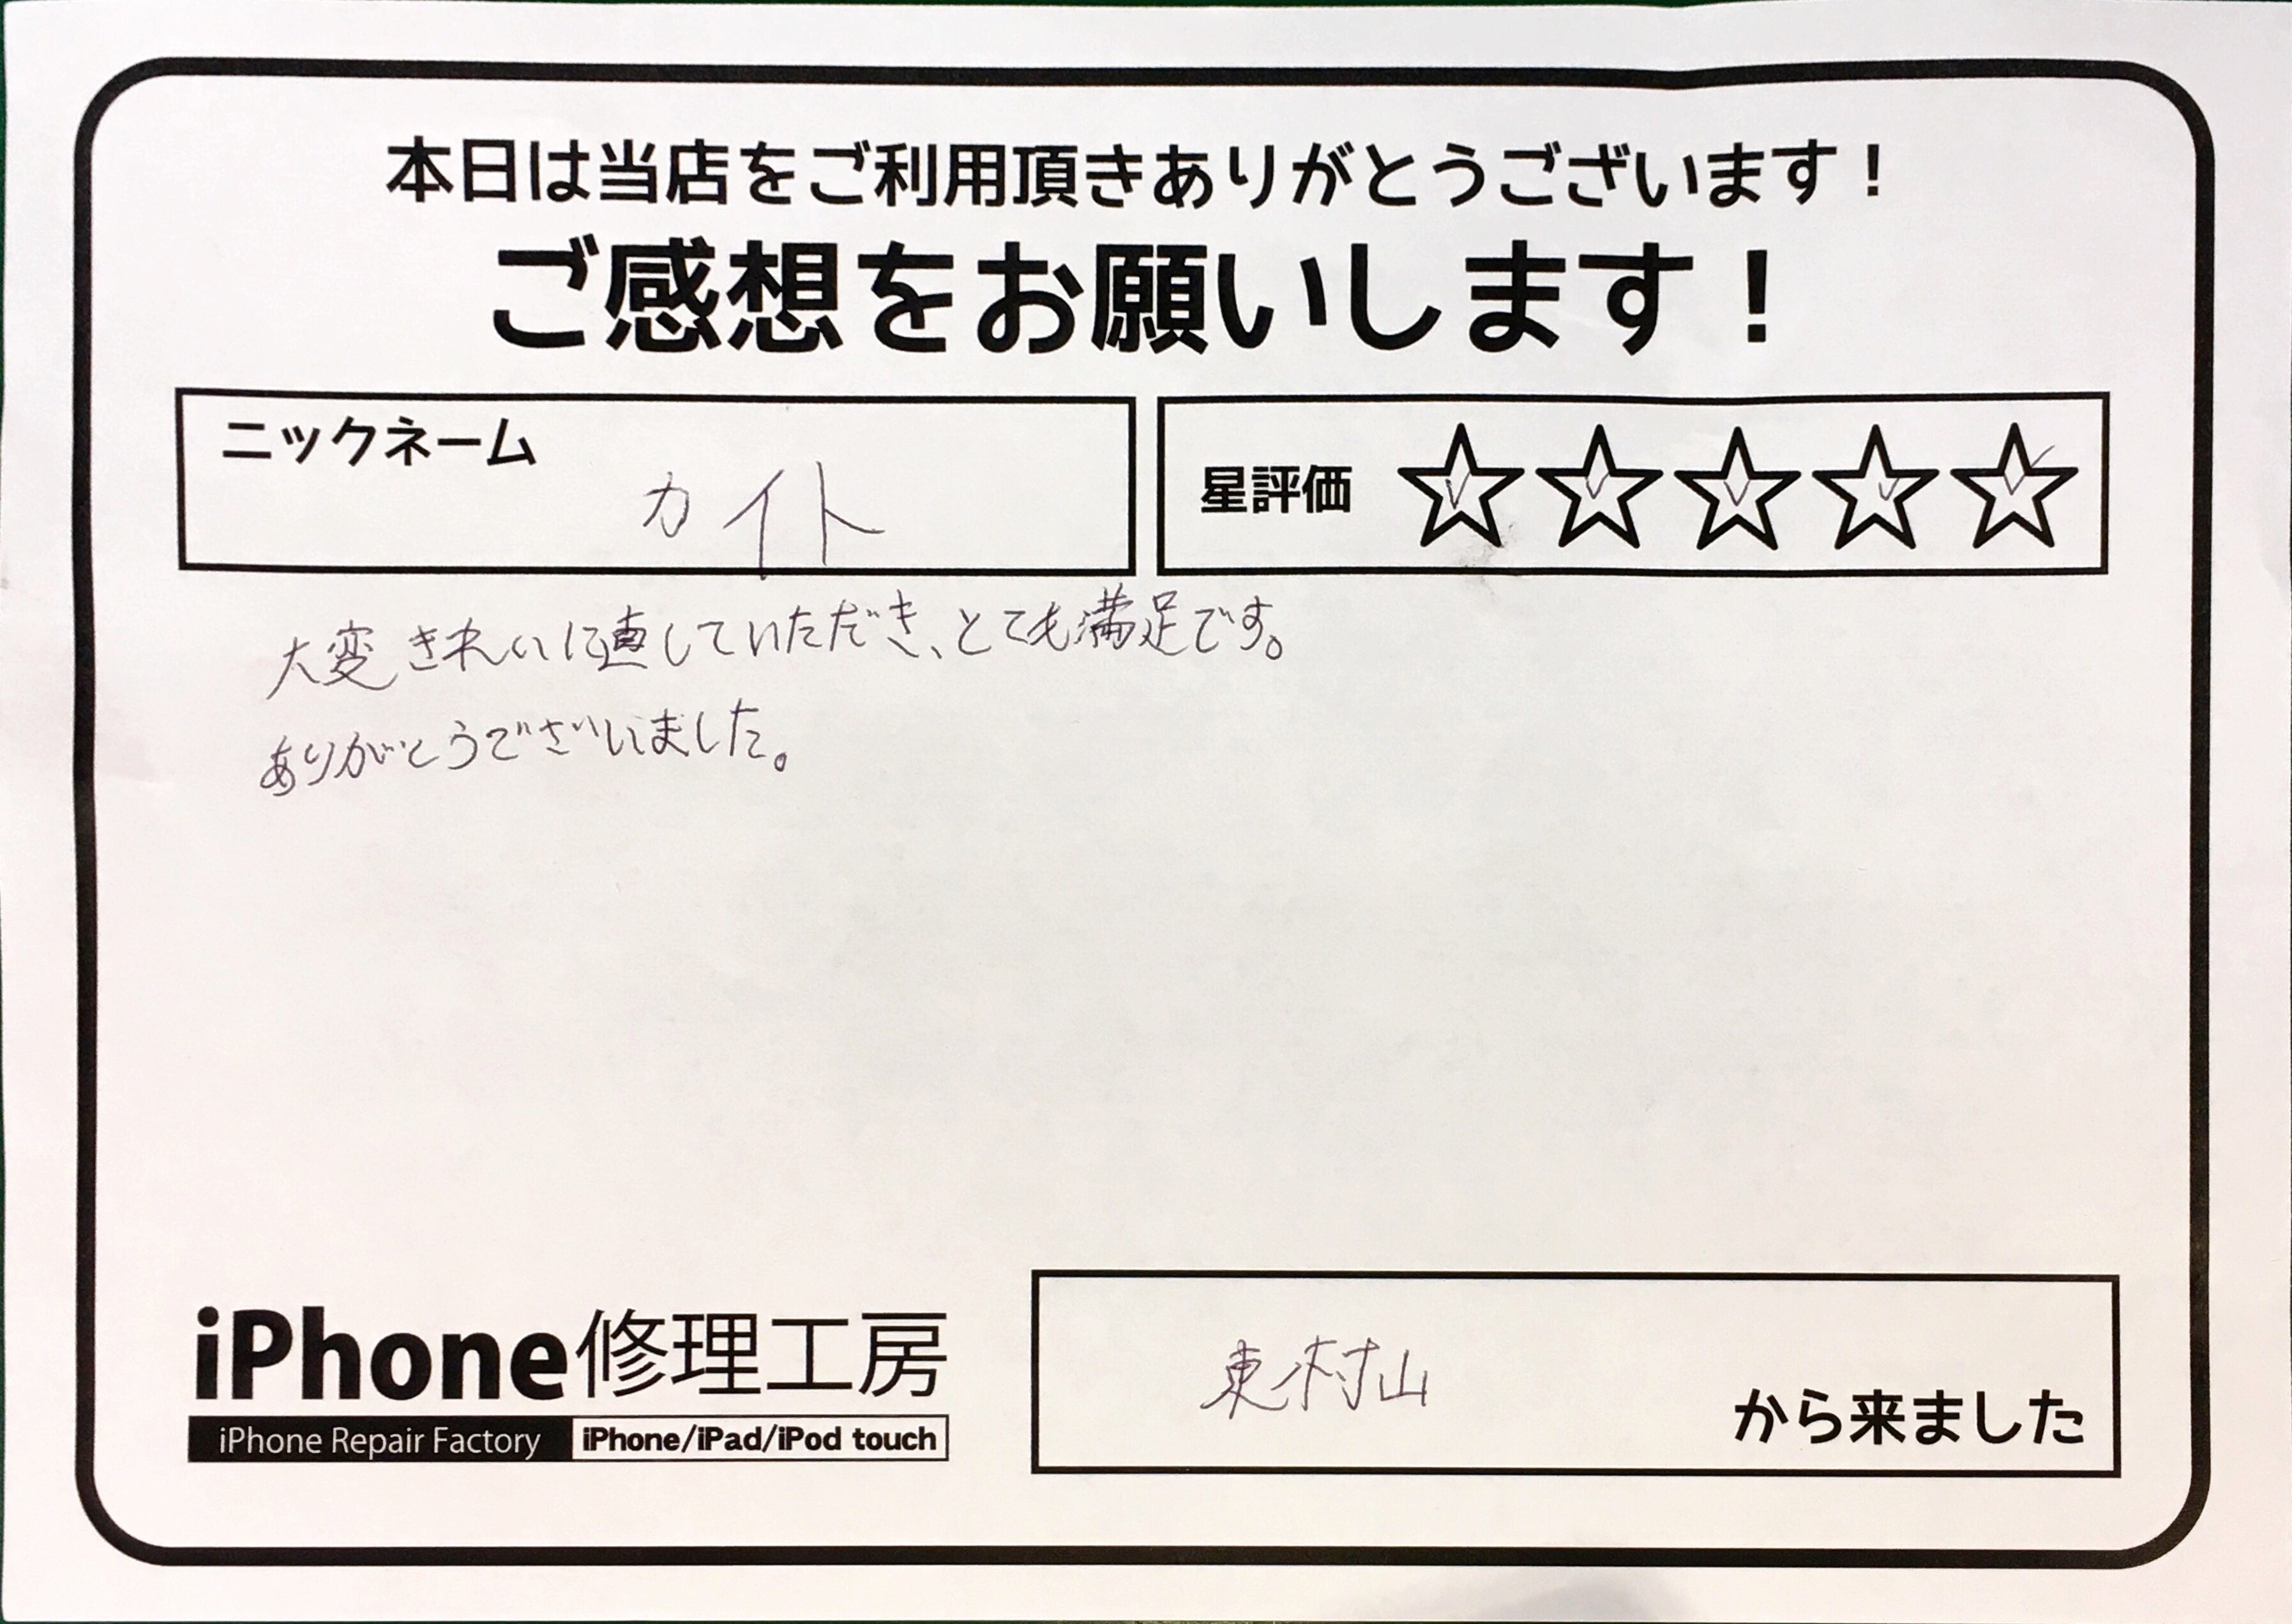 本日は当店をご利用頂きありがとうございます！
ご感想をお願いします！
ニックネーム
カイト
星評価 ☆☆☆☆☆
大変きれいに直していただき、とても満足です。
ありがとうございました。
iPhone修理工房
iPhone Repair Factory iPhone/iPad/iPod touch
東村山
から来ました